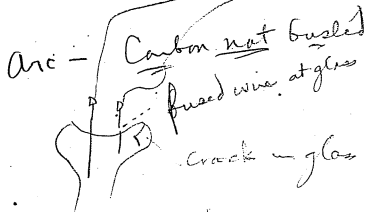 Arc — Carbon not busted
fused wire at glass
crack in glass